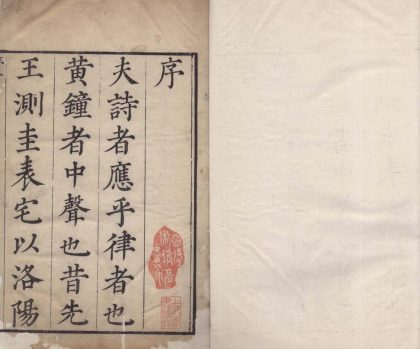 序
夫詩者應乎律者也
黃鐘者中聲也昔先
王測圭表宅以洛陽